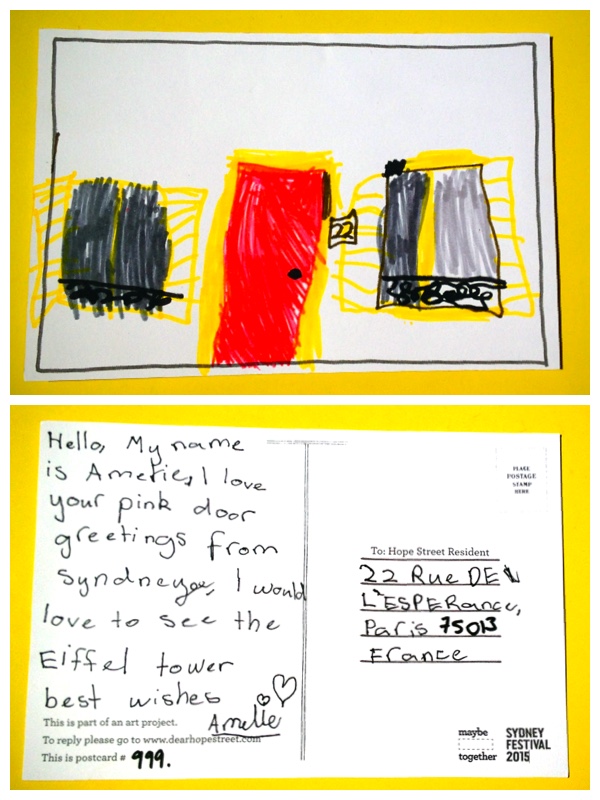 22
Hello, My name
is Amelie, I love
your pink door
greetings from
Syndney, I would
love to see the
Eiffel tower
best wishes
Amelie
This is part of an art project.
To reply please go to www.dearhopestreet.com
This is postcard # 999.
PLACE
POSTAGE
STAMP
HERE
To: Hope Street Resident
22 Rue DE
L'ESPERance,
Paris 75013
France
maybe
together
SYDNEY
FESTIVAL
2015